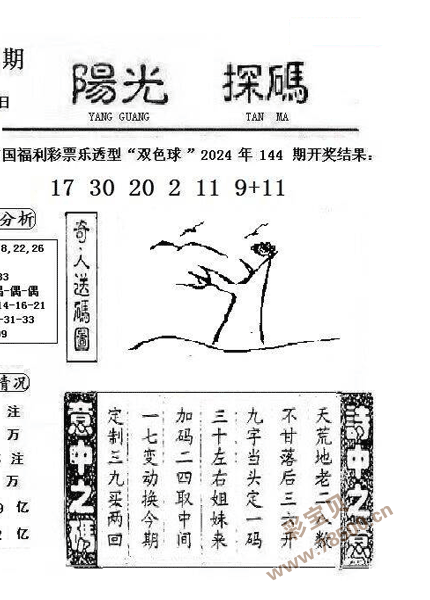 期
日
陽光 探碼
YANG GUANG TAN MA
国福利彩票乐透型“双色球”2024 年 144 期开奖结果:
17 30 20 2 11 9+11
分析
8,22,26
33
偶-偶
14-16-21
-31-33
09
奇人送碼圖
情况
注
万
注
万
9 亿
2 亿
詩中之意
天荒地老二八数
不甘落后三六开
九字当头定一码
三十左右姐妹来
加码二四取中间
一七变动换今期
定制三九买两回
意中之碼
彩宝贝
www.78500.cn